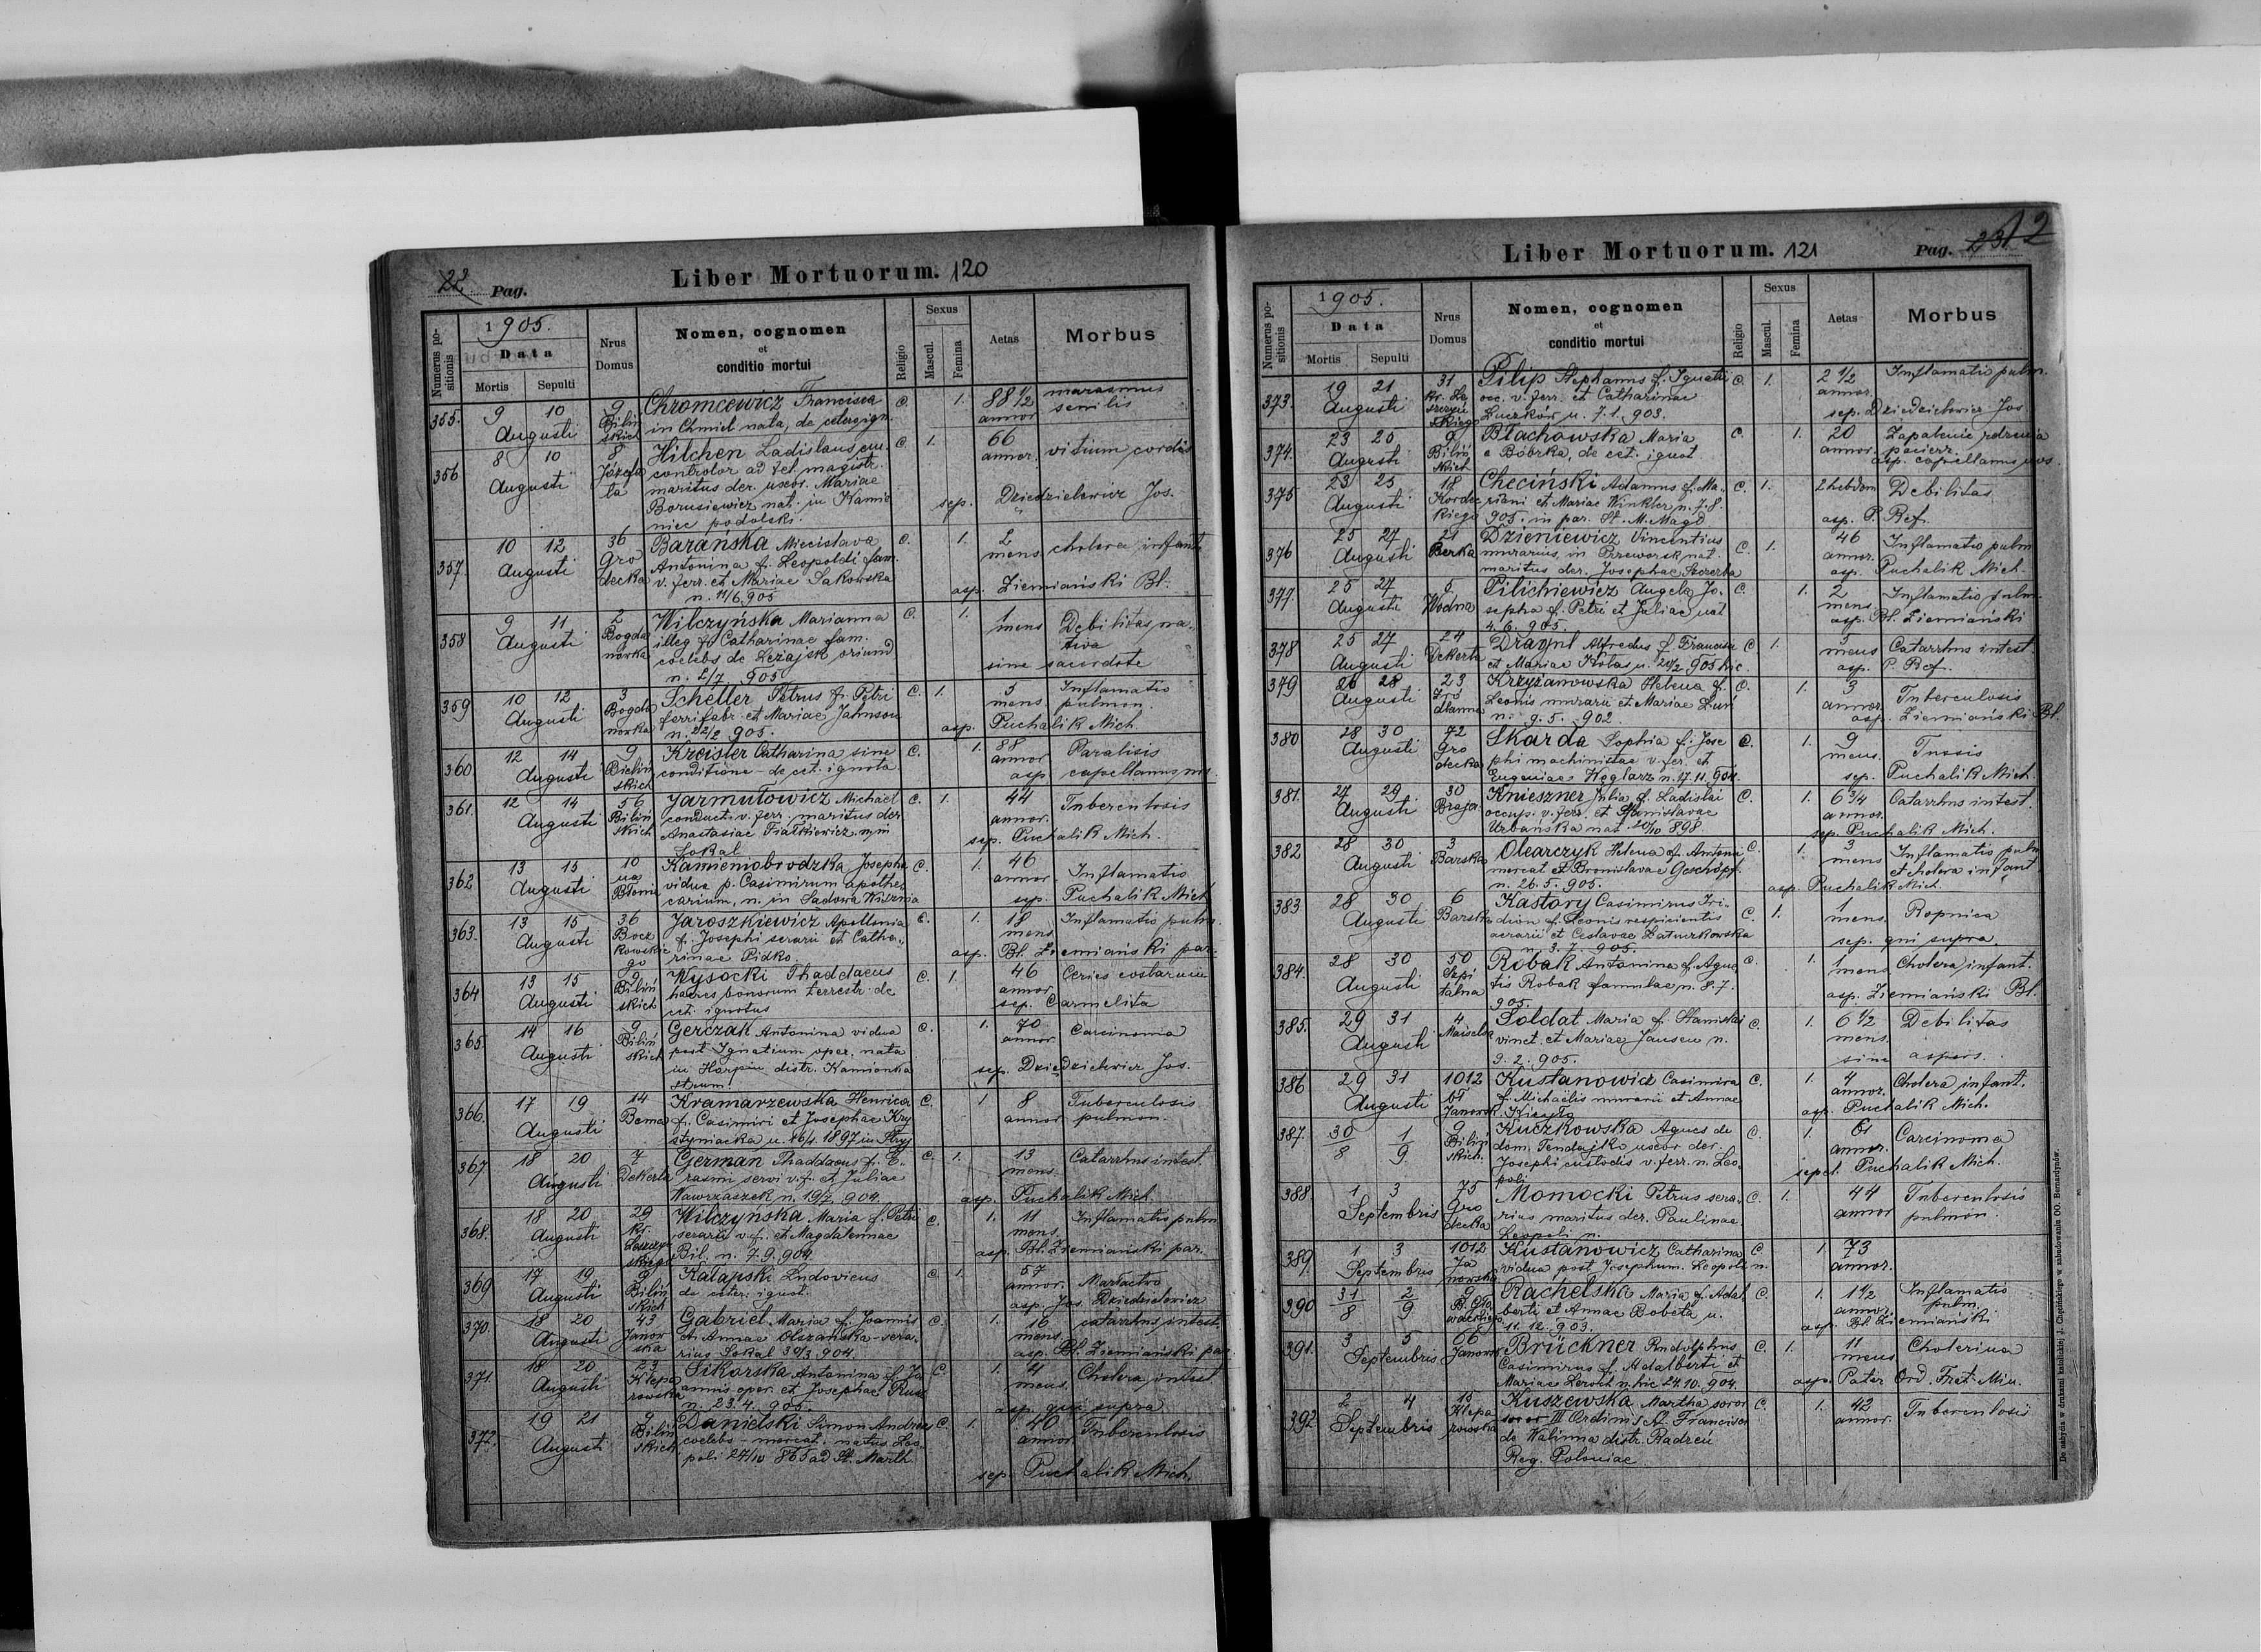 22. Pag.
Liber Mortuorum. 120
Numerus positionis
1905.
Data
Mortis Sepulti
Nrus Domus
Nomen, cognomen
et
conditio mortui
Religio
Sexus
Mascul. Femina
Aetas
Morbus
355. 9 10 9 Chromcewicz Francisca C. 1. 88 1/2 marasmus
Augusti Biliń in Chmiel nata, de cetero ign. annor senilis
skich
356 8 10 8 Hilchen Ladislaus em. C. 1. 66 vitium cordis
Augusti Józefa controlor ad tel. magistr. annor.
ta maritus der. uxor. Mariae
Borusiewicz nat. in Kamie sep. Dziedzielewicz Jos.
niec podolski.
357. 10 12 36 Barańska Miecislava C. 1. 2 cholera infant
Augusti Gro Antonina f. Leopoldi fam. mens
decka v. ferr. et Mariae Sakowska asp. Ziemiański Bl.
n. 11/6 905
358 9 11 2 Wilczyńska Marianna C. 1. 1 Debilitas na-
Augusti Bogda illeg. f. Catharinae fam. mens tiva
nówka coelebs de Leżajsk oriund sine sacerdote
n. 2/7 905
359 10 12 3 Scheller Petrus f. Petri C. 1. 5 Inflamatio
Augusti Bogda ferrifabr. et Mariae Jahnson mens pulmon.
nówka n. 22/2 905. asp. Puchalik Mich.
360. 12 14 9 Kreisler Catharina sine C. 1. 88 Paralisis
Augusti Bieliń conditione - de cet. ignota annor
skich asp. capellanus n.
361. 12 14 56 Jarmułowicz Michael C. 1. 44 Tuberculosis
Augusti Biliń conduct. v. ferr. maritus der annor.
skich Anastasiae Fiałkiewicz n. in sep. Puchalik Mich.
Sokal
362 13 15 10 Kamienobrodzka Josepha C. 1. 46 Inflamatio
Augusti na vidua p. Casimirum apothe annor.
Błonie carium, n. in Sądowa Wisznia sep. Puchalik Mich.
363. 13 15 36 Jaroszkiewicz Apollonia C. 1. 18 Inflamatio pulm.
Augusti Bocz f. Josephi serarii et Catha- mens
kowskie rinae Pidko. asp. Bl. Ziemiański par.
go
364 13 15 9 Wysocki Thaddaeus C. 1. 46 Caries costarum
Augusti Biliń haeres bonorum terrestr. de annor
skich cet. ignotus sep. Carmelita
365. 14 16 9 Gerczak Antonina vidua C. 1. 70 Carcinoma
Augusti Biliń post Ignatium oper. nata annor
skich in Harpin distr. Kamionka sep. Dziedzielewicz Jos.
strum.
366. 17 19 14 Kramarzewska Henrica C. 1 8 Tuberculosis
Augusti Bema f. Casimiri et Josephae Kry annor pulmon.
styniacka n. 16/1. 1897 in Stryj
367 18 20 7 German Thaddaeus f. E- C. 1. 13 Catarrhus intest.
Augusti Dekerta rasmi servi v. f. et Juliae mens
Wawrzaszek n. 19/7 904. asp. Puchalik Mich.
368. 18 20 29 Wilczyńska Maria f. Petri C. 1. 11 Inflamatio pulm
Augusti kr. serarii v. f. et Magdalennae mens.
Leszczyń Bil. n. 7. 9. 904 asp. Bl. Ziemiański par.
skiego
369 17 19 9 Katapski Ludovicus C. 1. 57
Augusti Biliń de ceter. ignot. annor.
skich asp. Jos. Dziedzielewicz
370. 18 20 43 Gabriel Maria f. Joannis C. 1. 16 catarrhus intest.
Augusti Janow et Annae Olszańska - sera- mens.
ska rius Sokal 30/3 904. asp. Bl. Ziemiański par.
371. 18 20 23 Sikorska Antonina f. Jo C. 1. 4 Cholera intest
Augusti Klepa annis oper. et Josephae Rus mens.
rowska n. 23. 4. 905. asp. qui supra
372. 19 21 9 Danielski Simon Andreas C. 1. 40 Tuberculosis
Augusti Biliń coelebs - mercat. natus Leo- annor.
skich poli 27/10 865 ad St. Marth. sep. Puchalik Mich.
Liber Mortuorum. 121
Pag. 23 12
Numerus positionis
1905.
Data
Mortis Sepulti
Nrus Domus
Nomen, cognomen
et
conditio mortui
Religio
Sexus
Mascul. Femina
Aetas
Morbus
373. 19 21 31. Pilip Stephanus f. Ignatii C. 1. 2 1/2 Inflamatio pulm.
Augusti Kr. Le occ. v. ferr. et Catharinae annor.
szczyń Łuczków n. 7. 1. 903. sep. Dziedzielewicz Jos.
skiego
374. 23 25 9 Błachowska Maria C. 1. 20 Zapalenie rdzenia
Augusti Biliń e Bóbrka, de cet. ignot annor. pacierz.
skich asp. capellanus nos.
375 23 25 18 Checiński Adamus f. Ma- C. 1. 2 hebdom Debilitas
Augusti Kordec riani et Mariae Winkler n. 7. 8.
kiego 905. in par. St. M. Magd asp. P. Ref.
376 25 27 21 Dzieniewicz Vincentius C. 1. 46 Inflamatio pulm
Augusti Berka murarius, in Przeworsk nat. annor.
maritus der. Josephae Szczerba asp. Puchalik Mich.
377. 25 27 5. Pilichiewicz Angela Jo- C. 1. 2 Inflamatio pulm.
Augusti Wodna sepha f. Petri et Juliae nat mens
4. 6. 905. asp. Bl. Ziemiański
378 25 27 24 Dragnl Alfredus f. Francisci C 1. 5 Catarrhus intest.
Augusti Dekerta et Mariae Hołas n. 20/2 905 hic. mens
asp. P. Ref.
379 26 28 23 Krzyżanowska Helena f. C. 1. 3 Tuberculosis
Augusti Źró Leonis murarii et Mariae Luń annor
dlanna n. 9. 5. 902. asp. Ziemiański Bl.
380 28 30 72 Skarda Sophia f. Jose C. 1. 9 Tussis
Augusti Gro phi machinistae v. fer. et mens.
decka Eugeniae Węglarz n. 17. 11. 904. sep. Puchalik Mich.
381. 27 29 30 Knieszner Julia f. Ladislai C. 1. 6 3/4 Catarrhus intest.
Augusti Braja. occup. v. ferr. et Stanislavae annor.
Urbańska nat. 20/10 898 sep. Puchalik Mich.
382 28 30 3 Olearczyk Helena f. Antonii C. 1. 3 Inflamatio pulm
Augusti Barska mercat et Bronislavae Geschöpf. mens et cholera infant
n. 26. 5. 905. asp. Puchalik Mich.
383 28 30 6 Kastory Casimirus Iri- C. 1. 1 Ropnica
Augusti Barska dion f. Leonis respicientis mens
aerarii et Ceslavae Zaturkowska sep. qui supra
n. 3. 7. 905.
384. 28 30 50 Robak Antonina f. Agne C. 1. 1 Cholera infant.
Augusti Szpi tis Robak famulae n. 8. 7. mens
talna 905. asp. Ziemiański Bl.
385. 29 31 4 Soldat Maria f. Stanislai C. 1. 6 1/2 Debilitas
Augusti Maiselsa vinct. et Mariae Jansen n. mens.
9. 2. 905. sine aspers.
386 29 31 1012 Kustanowicz Casimira C. 1. 4 Cholera infant.
Augusti bł f. Michaelis murarii et Annae annor.
Janowsk. asp. Puchalik Mich.
387. 30/8 1/9 9 Kuczkowska Agnes de C. 1. 61 Carcinoma
Biliń dom. Pendajko uxor der. annor.
skich. Josephi custodis v. ferr. n. Leo- sepel. Puchalik Mich.
poli
388 1 3 75 Momocki Petrus sera- C. 1. 44 Tuberculosis
Septembris Gro rius maritus der. Paulinae annor pulmon.
decka Leopoli n.
389. 1 3 1012 Kustanowicz Catharina C. 1. 73
Septembris Ja vidua post Josephum. Leopoli n. annor.
nowska
390 31/8 2/9 9 Rachelska Maria f. Adal C. 1. 1 1/2 Inflamatio
B. Gło berti et Annae Bobeta n. annor. pulm
wackiego 11. 12. 903. asp. Bl. Ziemiański
391. 3 5 66 Brückner Rudolphus C. 1. 11 Cholerina
Septembris Janows. Casimirus f. Adalberti et mens
Mariae Lerech n. hic 24. 10. 904. asp. Pater Ord. Frat. Min.
392 2 4 15 Kuszewska Martha soror C. 1. 42 Tuberculosis
Septembris Klepa soror III Ordinis St. Francisci annor.
rowska de Walinna distr. Radzeń
Reg. Poloniae
Do nabycia w drukarni katolickiej J. Chęcińskiego w zabudowaniu OO. Bernardynów.